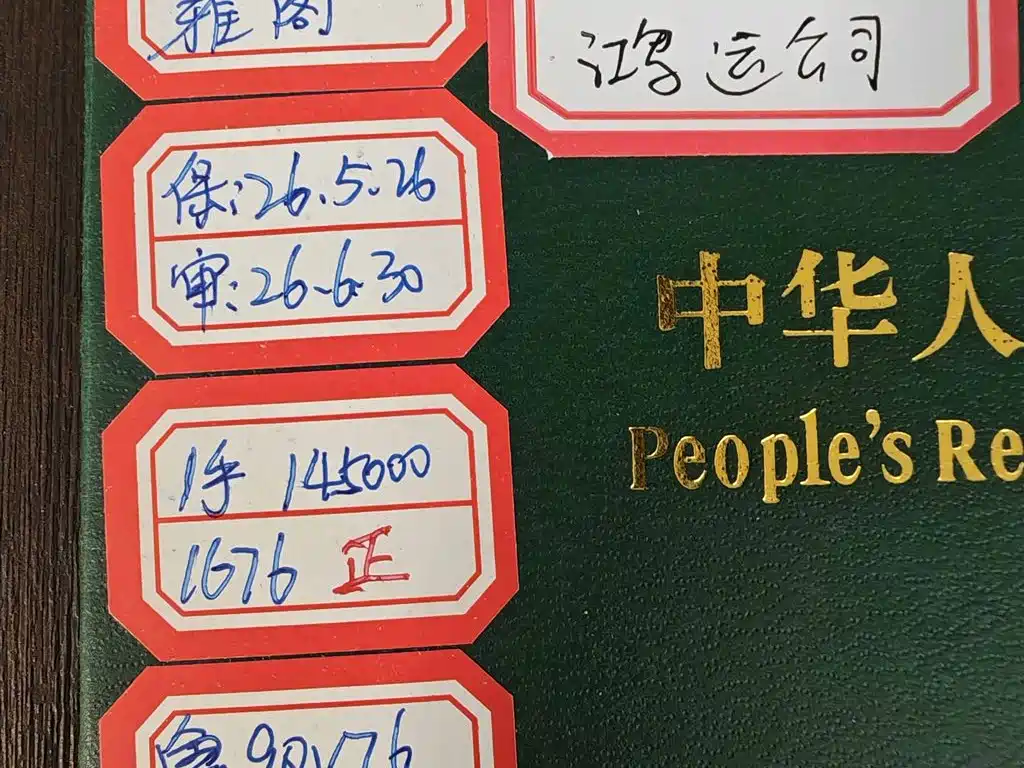 雅阁
鸿运公司
保:26.5.26
审:26.6.30
1手 145000
1676 正
中华人
People's Re
90V76